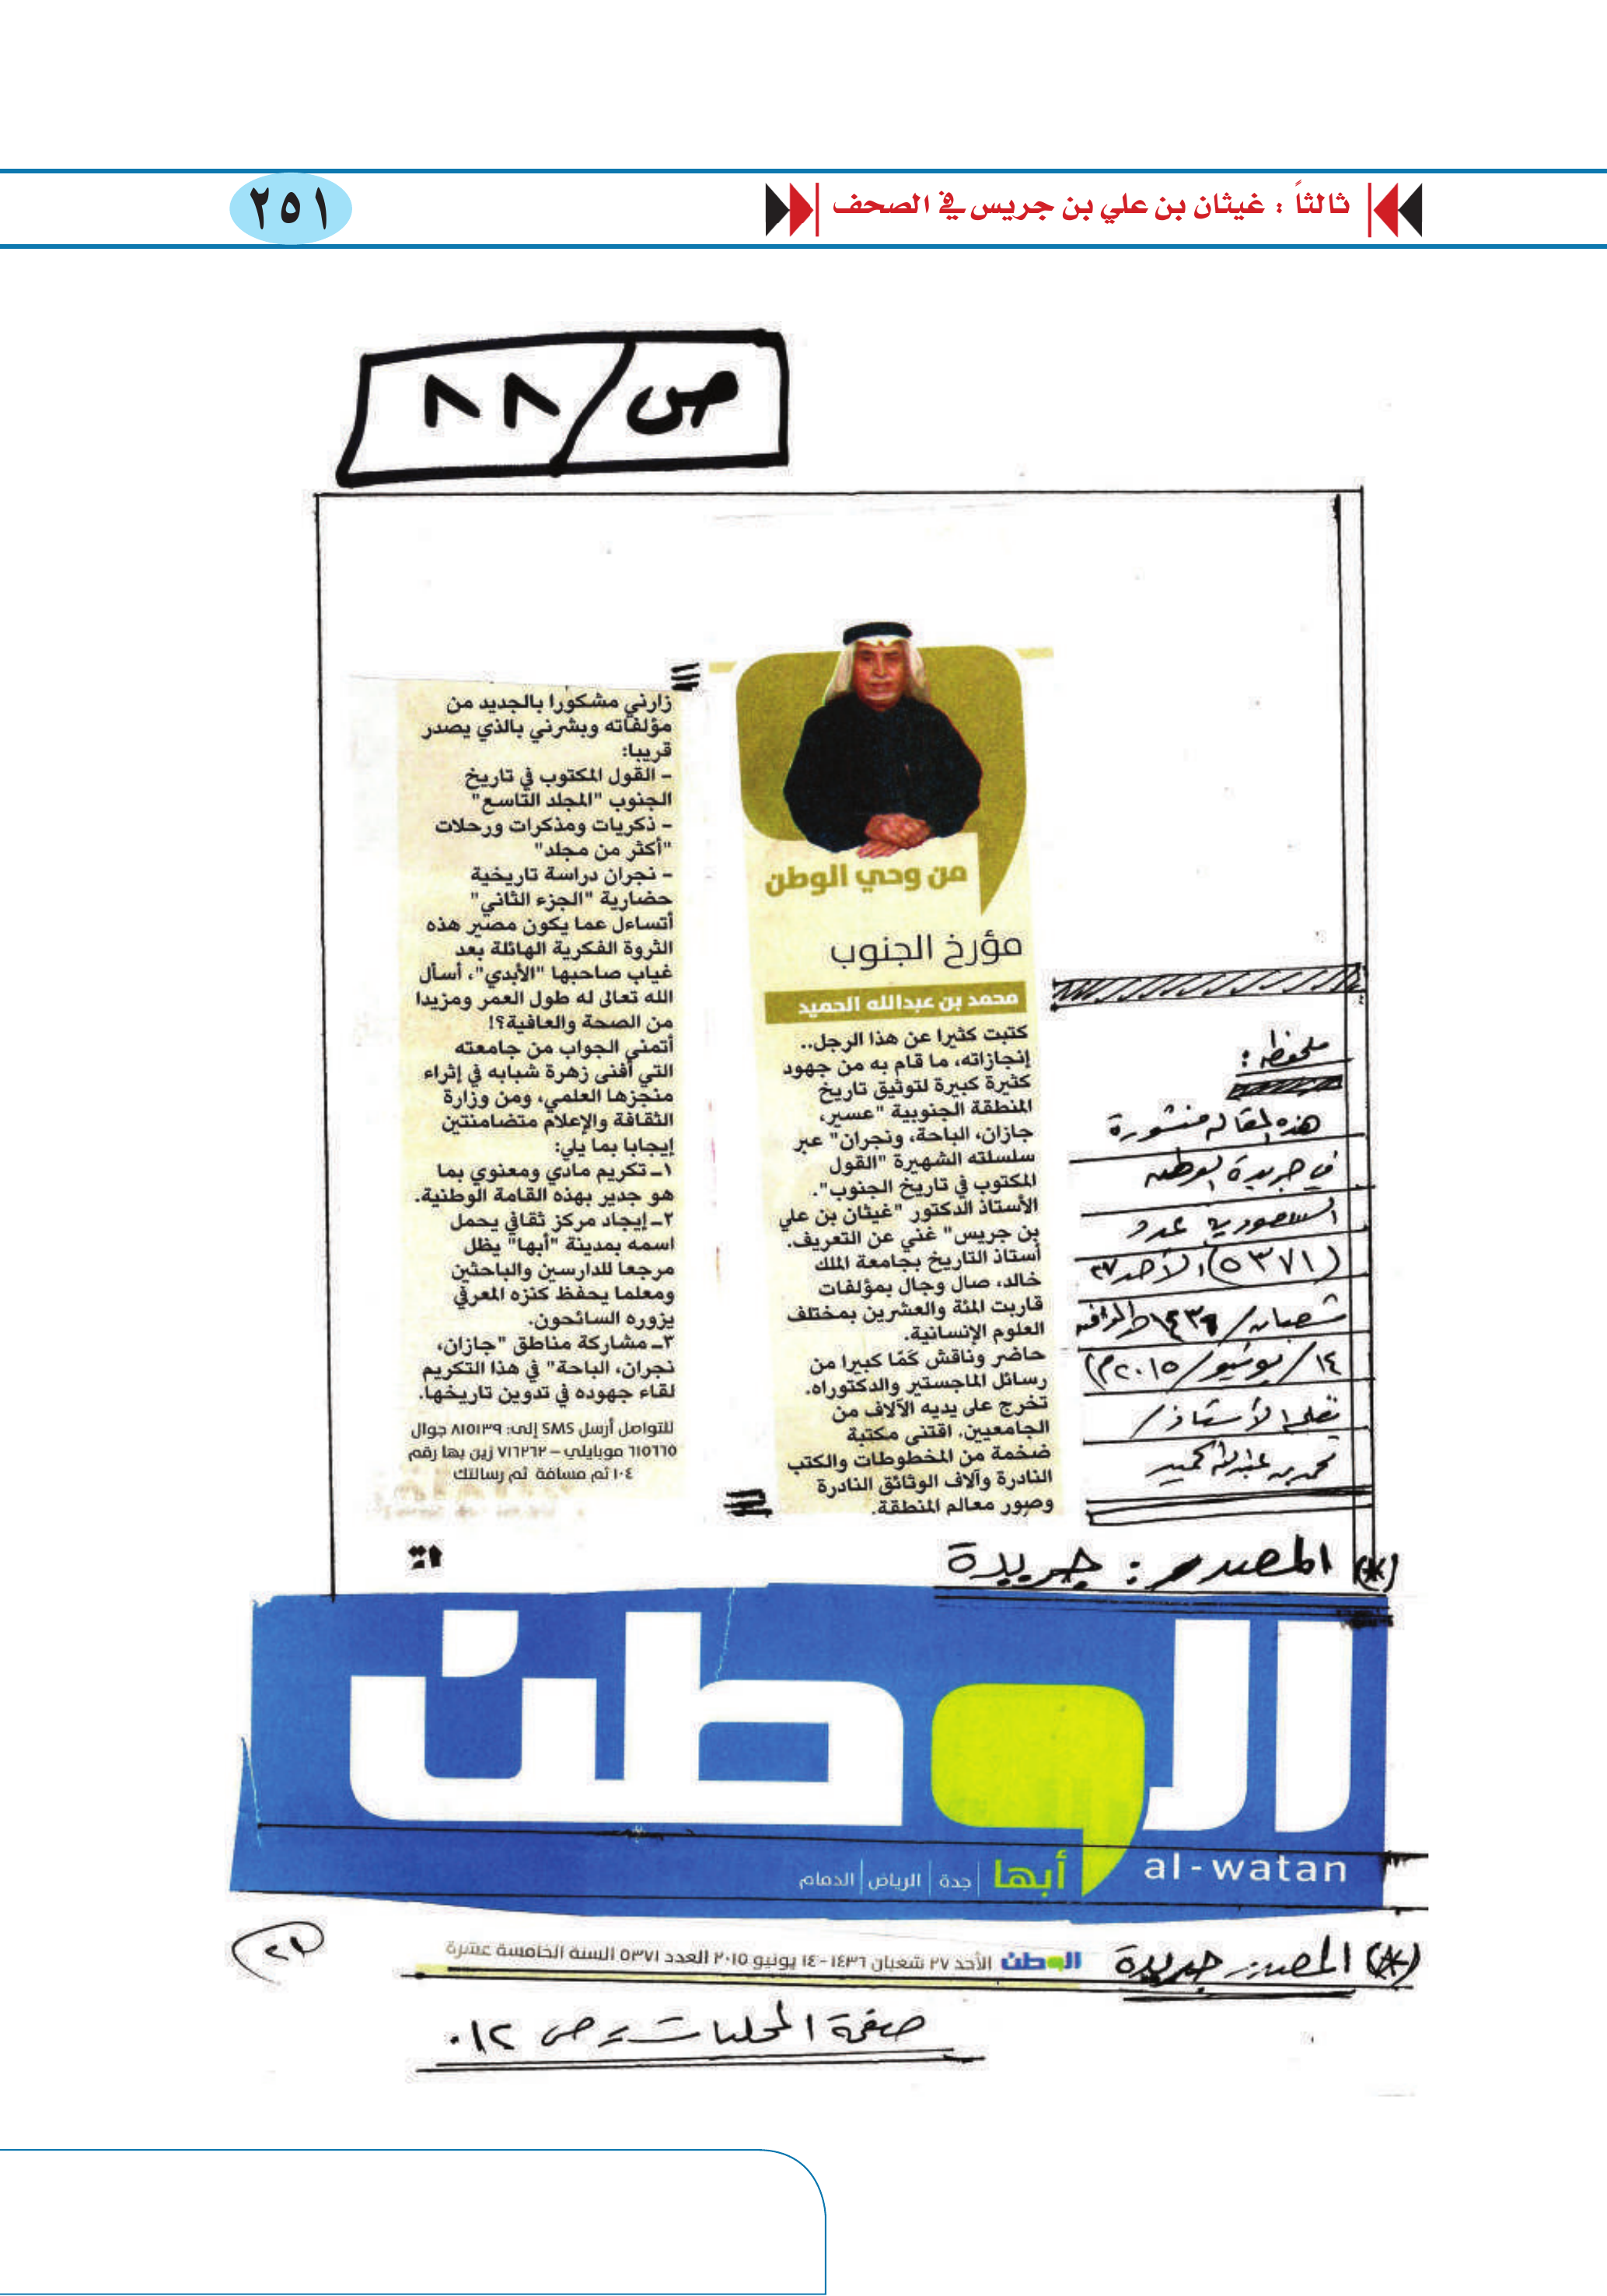 ثالثاً : غيثان بن علي بن جريس في الصحف
٢٥١
ص/٨٨
من وحي الوطن
مؤرخ الجنوب
محمد بن عبدالله الحميد
كتبت كثيرا عن هذا الرجل..
إنجازاته، ما قام به من جهود
كثيرة كبيرة لتوثيق تاريخ
المنطقة الجنوبية "عسير،
جازان، الباحة، ونجران" عبر
سلسلته الشهيرة "القول
المكتوب في تاريخ الجنوب".
الأستاذ الدكتور "غيثان بن علي
بن جريس" غني عن التعريف.
أستاذ التاريخ بجامعة الملك
خالد، صال وجال بمؤلفات
قاربت المئة والعشرين بمختلف
العلوم الإنسانية.
حاضر وناقش كمّا كبيرا من
رسائل الماجستير والدكتوراه.
تخرج على يديه الآلاف من
الجامعيين. اقتنى مكتبة
ضخمة من المخطوطات والكتب
النادرة وآلاف الوثائق النادرة
وصور معالم المنطقة.
زارني مشكورا بالجديد من
مؤلفاته وبشرني بالذي يصدر
قريبا:
- القول المكتوب في تاريخ
الجنوب "المجلد التاسع"
- ذكريات ومذكرات ورحلات
"أكثر من مجلد"
- نجران دراسة تاريخية
حضارية "الجزء الثاني"
أتساءل عما يكون مصير هذه
الثروة الفكرية الهائلة بعد
غياب صاحبها "الأبدي"، أسأل
الله تعالى له طول العمر ومزيدا
من الصحة والعافية؟!
أتمنى الجواب من جامعته
التي أفنى زهرة شبابه في إثراء
منجزها العلمي، ومن وزارة
الثقافة والإعلام متضامنتين
إيجابا بما يلي:
١ـ تكريم مادي ومعنوي بما
هو جدير بهذه القامة الوطنية.
٢ـ إيجاد مركز ثقافي يحمل
اسمه بمدينة "أبها" يظل
مرجعا للدارسين والباحثين
ومعلما يحفظ كنزه المعرفي
يزوره السائحون.
٣ـ مشاركة مناطق "جازان،
نجران، الباحة" في هذا التكريم
لقاء جهوده في تدوين تاريخها.
للتواصل أرسل SMS إلى: ٨١٥١٣٩ جوال
٦١٥٦٦٥ موبايلي – ٧١٦٢٦٢ زين بها رقم
١٠٤ ثم مسافة ثم رسالتك
ملحوظة :
هذه المقالة منشورة
في جريدة الوطن
السعودية عدد
(٥٣٧١) الأحد ٢٧
شعبان/١٤٣٦هـ الموافق
١٤/يونيو/٢٠١٥م)
بقلم الأستاذ/
محمد بن عبدالله الحميد
(*) المصدر : جريدة
الوطن
al-watan
أبها | جدة | الرياض | الدمام
(*) المصدر جريدة الوطن الأحد ٢٧ شعبان ١٤٣٦ - ١٤ يونيو ٢٠١٥ العدد ٥٣٧١ السنة الخامسة عشرة
صفحة المحليات = ص ١٢.